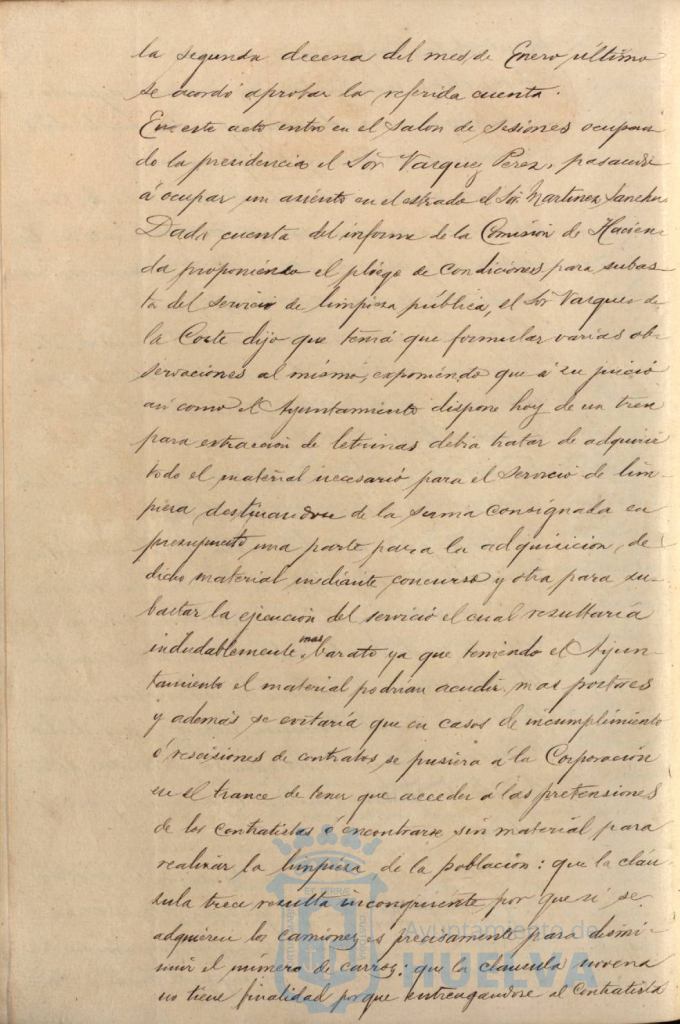 la segunda decena del mes de Enero último
se acordó aprobar la referida cuenta.
En este acto entró en el Salon de Sesiones ocupan-
do la presidencia el Sor Vazquez Perez, pasando
á ocupar un asiento en el estrado el Sor Martinez Sanchez
Dada cuenta del informe de la Comisión de Hacien-
da proponiendo el pliego de condiciones para subas-
ta del servicio de limpieza pública, el Sor Vazquez de
la Corte dijo que tenia que formular varias ob-
servaciones al mismo, exponiendo que á su juicio
asi como el Ayuntamiento dispone hoy de un tren
para extracción de letrinas debia tratar de adquirir
todo el material necesario para el servicio de lim-
pieza destinandose de la suma consignada en
presupuesto una parte para la adquisicion de
dicho material mediante concurso y otra para su-
bastar la ejecución del servicio el cual resultaria
indudablemente mas barato ya que teniendo el Ayun-
tamiento el material podrian acudir mas postores
y además se evitaría que en casos de incumplimiento
ó rescisiones de contratos se pusiera á la Corporación
en el trance de tener que acceder á las pretensiones
de los contratistas ó encontrarse sin material para
realizar la limpieza de la población: que la cláu-
sula trece resulta incongruente por que si se
adquieren los camiones es precisamente para dismi-
nuir el número de carros: que la cláusula novena
no tiene finalidad porque entregandose al Contratista
Ayuntamiento de
HUELVA